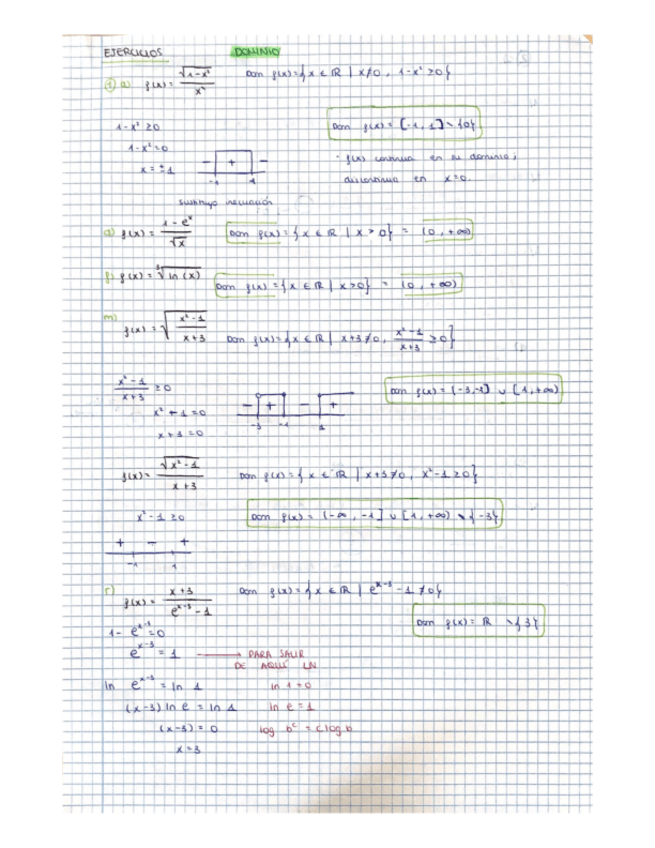 EJERCICIOS DOMINIO
1 a) f(x) = √(1-x²) / x² Dom f(x) = {x ∈ ℝ | x≠0, 1-x² ≥0}
1-x² ≥0 Dom f(x) = [-1, 1] \ {0}
1-x² = 0 · f(x) continua en su dominio,
x = ±1 − + − discontinua en x=0.
-1 1
sustituyo inecuación
d) f(x) = (1 - eˣ) / √x Dom f(x) = {x ∈ ℝ | x > 0} = (0, +∞)
f) f(x) = ³√ln(x) Dom f(x) = {x ∈ ℝ | x>0} = (0, +∞)
m) f(x) = √((x²-1) / (x+3)) Dom f(x) = {x ∈ ℝ | x+3≠0, (x²-1) / (x+3) ≥0}
(x²-1) / (x+3) ≥ 0 Dom f(x) = (-3,-1] ∪ [1,+∞)
x² + 1 = 0 − + − +
x+3 = 0 -3 -1 1
f(x) = √(x²-1) / (x+3) Dom f(x) = {x ∈ ℝ | x+3≠0, x²-1 ≥0}
x²-1 ≥0 Dom f(x) = (-∞, -1] ∪ [1, +∞) \ {-3}
+ − +
-1 1
r) f(x) = (x+3) / (eˣ⁻³ - 1) Dom f(x) = {x ∈ ℝ | eˣ⁻³ - 1 ≠0}
Dom f(x) = ℝ \ {3}
1- eˣ⁻³ = 0
eˣ⁻³ = 1 → PARA SALIR
DE AQUÍ LN
ln eˣ⁻³ = ln 1 ln 1 = 0
(x-3) ln e = ln 1 ln e = 1
(x-3) = 0 log bᶜ = c log b
x = 3